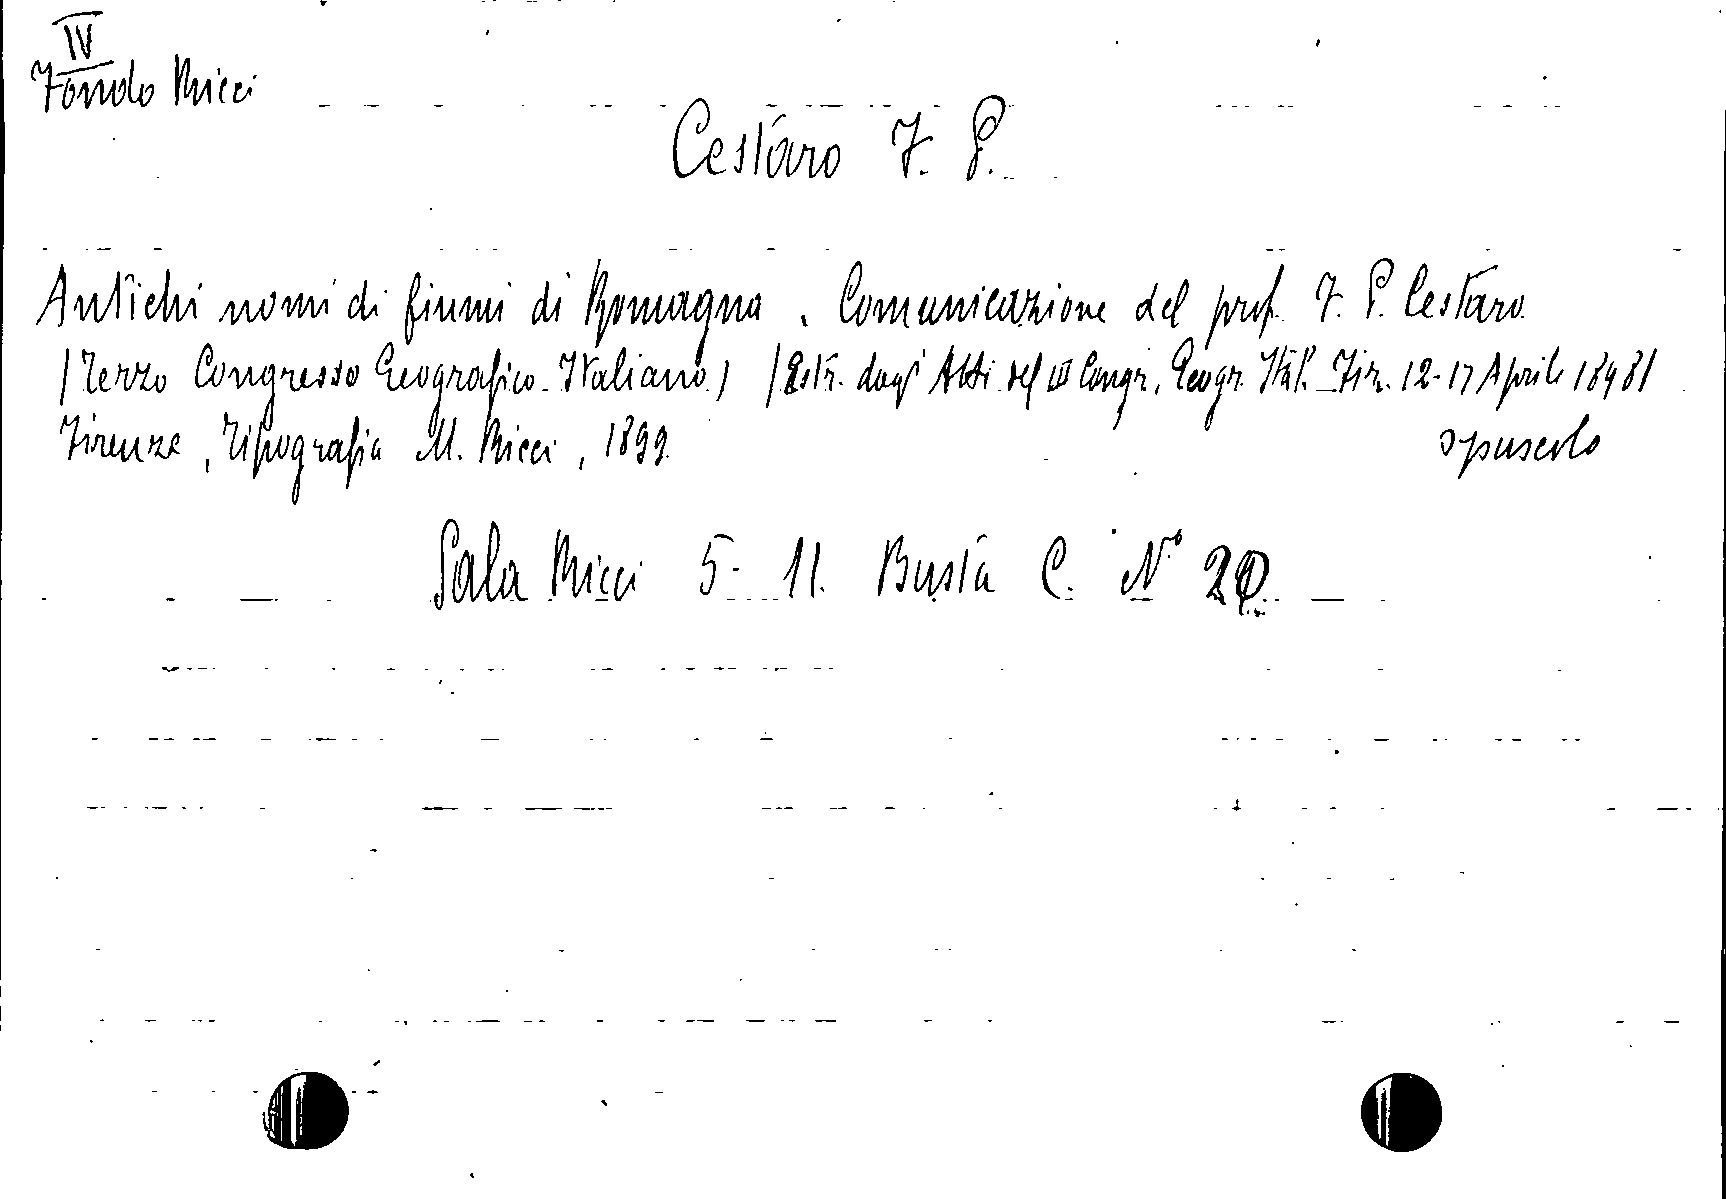 IV
Fondo Ricci
Cestaro F. P.
Antichi nomi di fiumi di Romagna. Comunicazione del prof. F. P. Cestaro
(Terzo Congresso Geografico Italiano) (Estr. dagl' Atti del III Congr. Geogr. Ital. Fir. 12-17 Aprile 1898)
Firenze, Tipografia M. Ricci, 1899 opuscolo
Sala Ricci 5- 11. Busta C. N° 20